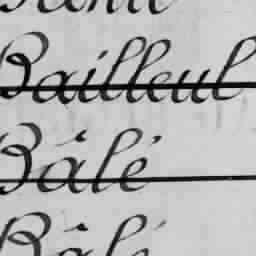 Bailleul
Bâlé
Bâlé